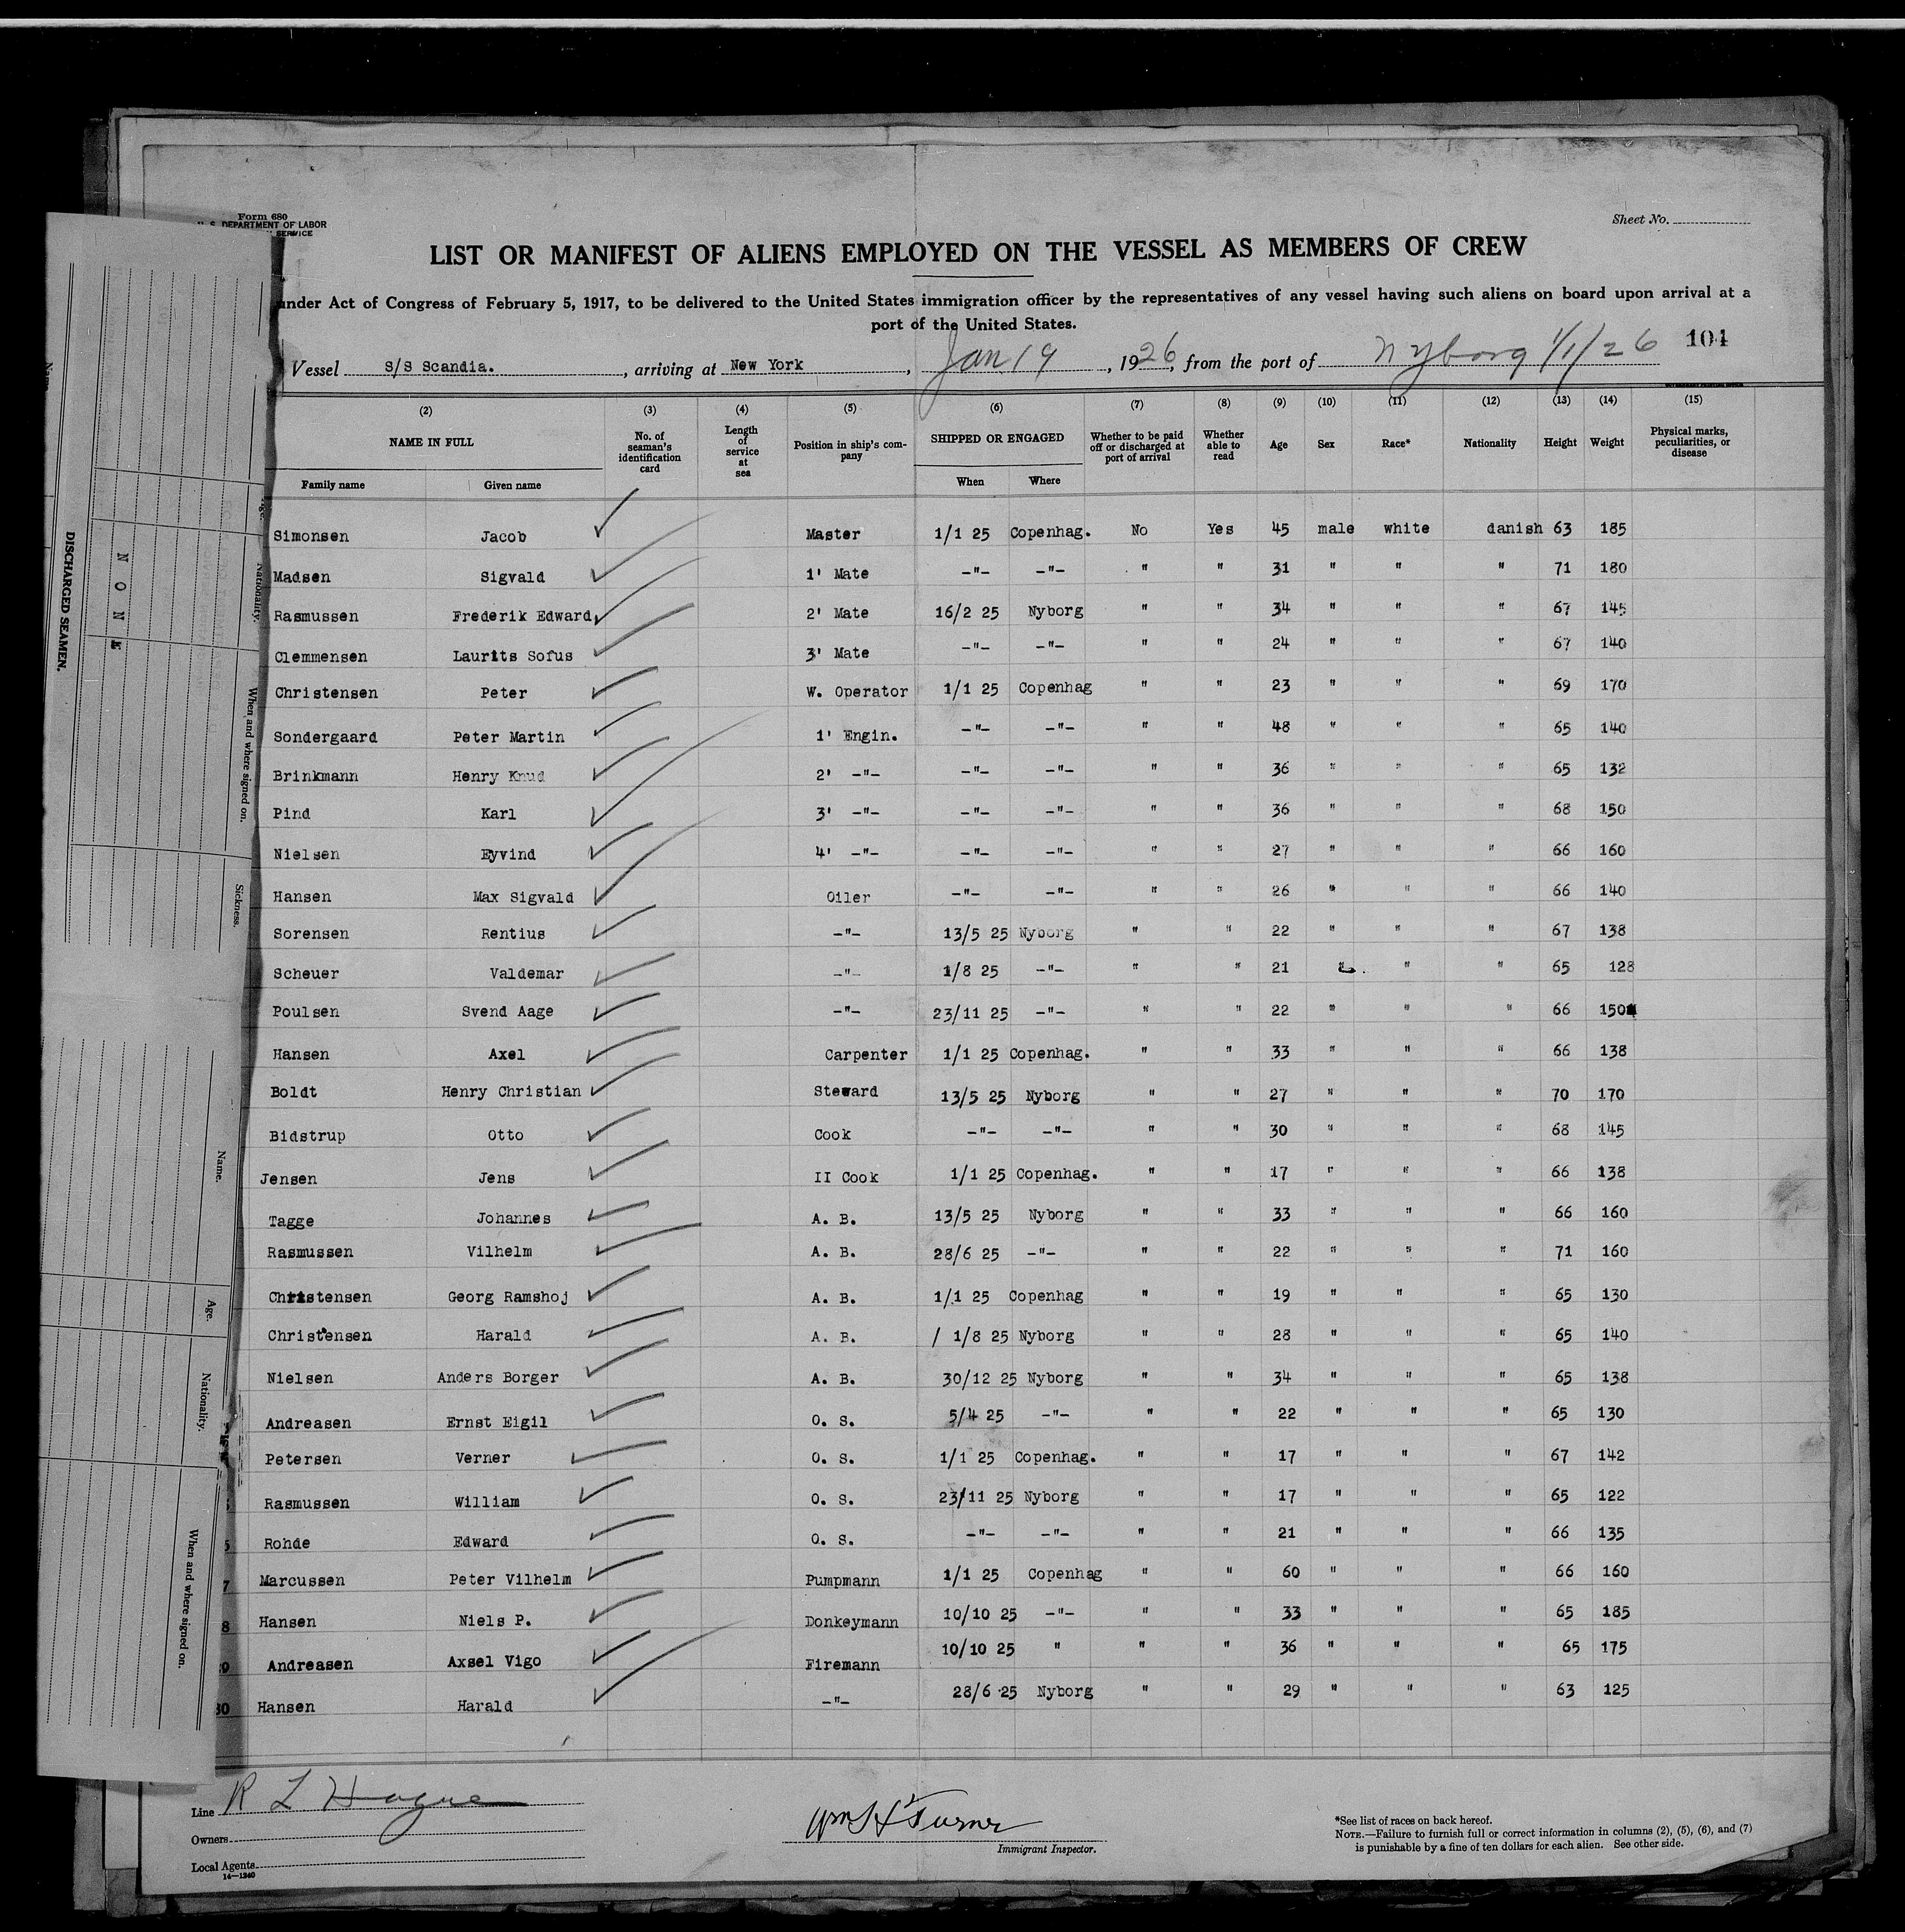 Form 680
U. S. DEPARTMENT OF LABOR
SERVICE
Sheet No.
LIST OR MANIFEST OF ALIENS EMPLOYED ON THE VESSEL AS MEMBERS OF CREW
under Act of Congress of February 5, 1917, to be delivered to the United States immigration officer by the representatives of any vessel having such aliens on board upon arrival at a
port of the United States.
104
Vessel S/S Scandia. , arriving at New York , Jan 19 , 1926, from the port of Nyborg 1/1/26
(2) (3) (4) (5) (6) (7) (8) (9) (10) (11) (12) (13) (14) (15)
NAME IN FULL No. of seaman's identification card Length of service at sea Position in ship's company SHIPPED OR ENGAGED Whether to be paid off or discharged at port of arrival Whether able to read Age Sex Race* Nationality Height Weight Physical marks, peculiarities, or disease
Family name Given name When Where
Simonsen Jacob Master 1/1 25 Copenhag. No Yes 45 male white danish 63 185
Madsen Sigvald 1' Mate -"- -"- " " 31 " " " 71 180
Rasmussen Frederik Edward 2' Mate 16/2 25 Nyborg " " 34 " " " 67 145
Clemmensen Laurits Sofus 3' Mate -"- -"- " " 24 " " " 67 140
Christensen Peter W. Operator 1/1 25 Copenhag " " 23 " " " 69 170
Sondergaard Peter Martin 1' Engin. -"- -"- " " 48 " " " 65 140
Brinkmann Henry Knud 2' -"- -"- -"- " " 36 " " " 65 132
Pind Karl 3' -"- -"- -"- " " 36 " " " 68 150
Nielsen Eyvind 4' -"- -"- -"- " " 27 " " " 66 160
Hansen Max Sigvald Oiler -"- -"- " " 26 " " " 66 140
Sorensen Rentius -"- 13/5 25 Nyborg " " 22 " " " 67 138
Scheuer Valdemar -"- 1/8 25 -"- " " 21 " " " 65 128
Poulsen Svend Aage -"- 23/11 25 -"- " " 22 " " " 66 150
Hansen Axel Carpenter 1/1 25 Copenhag. " " 33 " " " 66 138
Boldt Henry Christian Steward 13/5 25 Nyborg " " 27 " " " 70 170
Bidstrup Otto Cook -"- -"- " " 30 " " " 68 145
Jensen Jens II Cook 1/1 25 Copenhag. " " 17 " " " 66 138
Tagge Johannes A. B. 13/5 25 Nyborg " " 33 " " " 66 160
Rasmussen Vilhelm A. B. 28/6 25 -"- " " 22 " " " 71 160
Christensen Georg Ramshoj A. B. 1/1 25 Copenhag " " 19 " " " 65 130
Christensen Harald A. B. / 1/8 25 Nyborg " " 28 " " " 65 140
Nielsen Anders Borger A. B. 30/12 25 Nyborg " " 34 " " " 65 138
Andreasen Ernst Eigil O. S. 5/4 25 -"- " " 22 " " " 65 130
Petersen Verner O. S. 1/1 25 Copenhag. " " 17 " " " 67 142
Rasmussen William O. S. 23/11 25 Nyborg " " 17 " " " 65 122
Rohde Edward O. S. -"- -"- " " 21 " " " 66 135
7 Marcussen Peter Vilhelm Pumpmann 1/1 25 Copenhag " " 60 " " " 66 160
8 Hansen Niels P. Donkeymann 10/10 25 -"- " " 33 " " " 65 185
Andreasen Axsel Vigo Firemann 10/10 25 " " " 36 " " " 65 175
30 Hansen Harald -"- 28/6 25 Nyborg " " 29 " " " 63 125
Line R L Hague
Owners
Local Agents
14—1240
Wm H Turner
Immigrant Inspector.
*See list of races on back hereof.
NOTE.—Failure to furnish full or correct information in columns (2), (5), (6), and (7)
is punishable by a fine of ten dollars for each alien. See other side.
DISCHARGED SEAMEN.
NONE
Age.
Nationality.
When and where signed on.
Sickness.
Name.
Age.
Nationality.
When and where signed on.